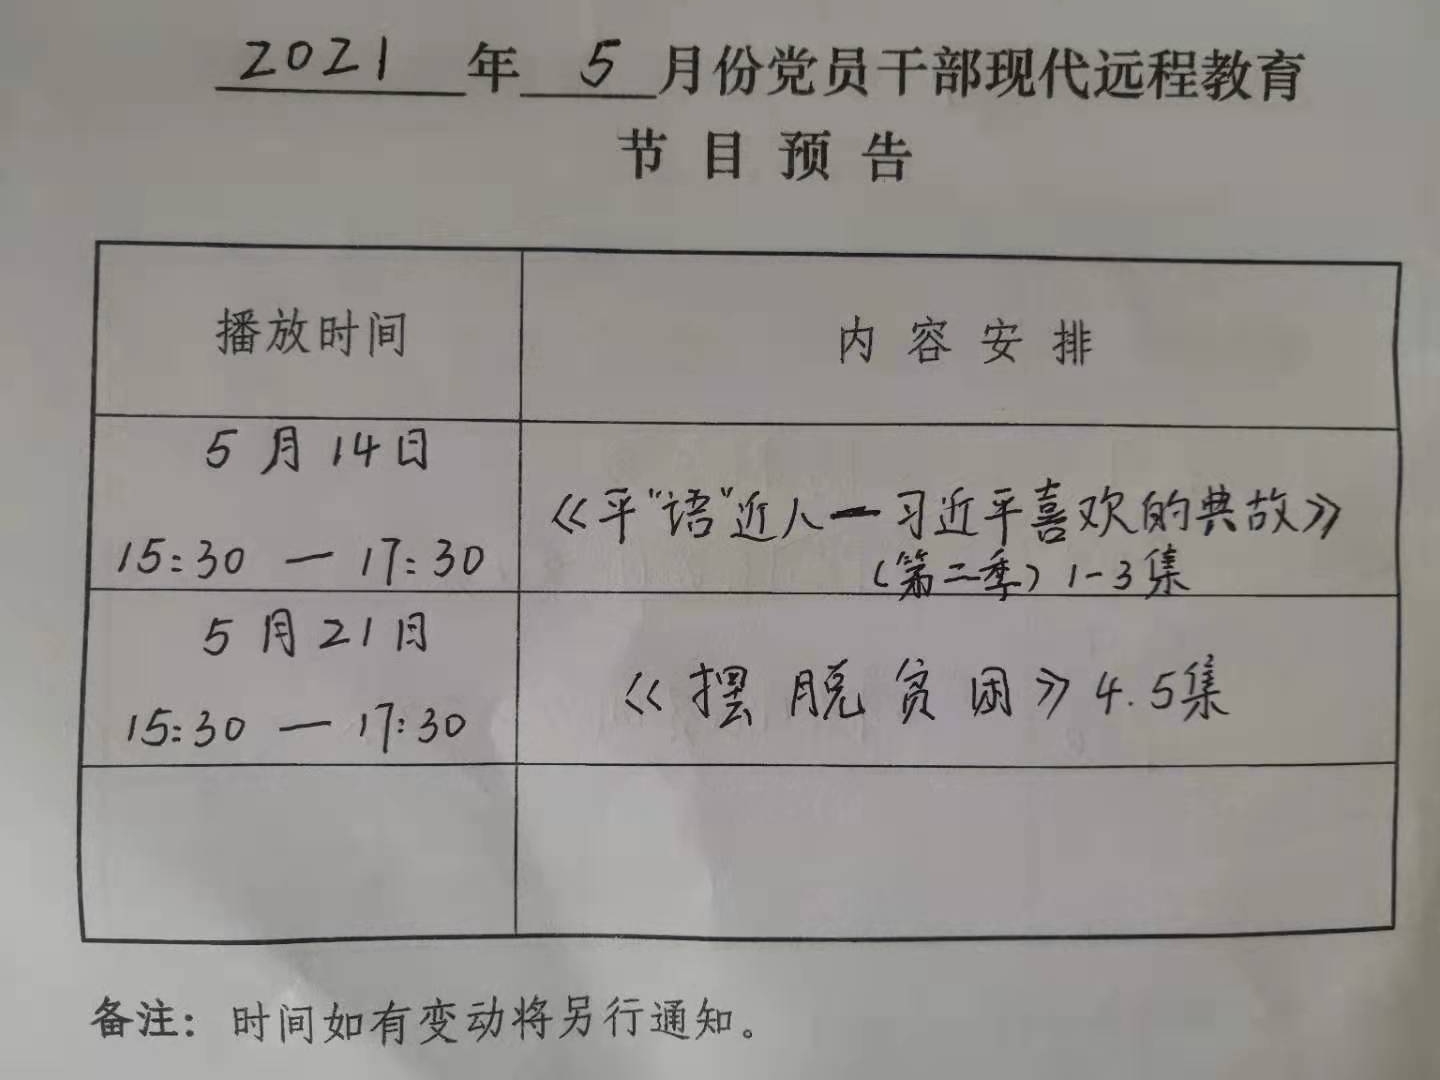 2021年5月份党员干部现代远程教育
节目预告
播放时间
内容安排
5月14日
15:30 — 17:30
《平"语"近人—习近平喜欢的典故》
(第二季) 1-3集
5月21日
15:30 — 17:30
《摆脱贫困》4.5集
备注：时间如有变动将另行通知。